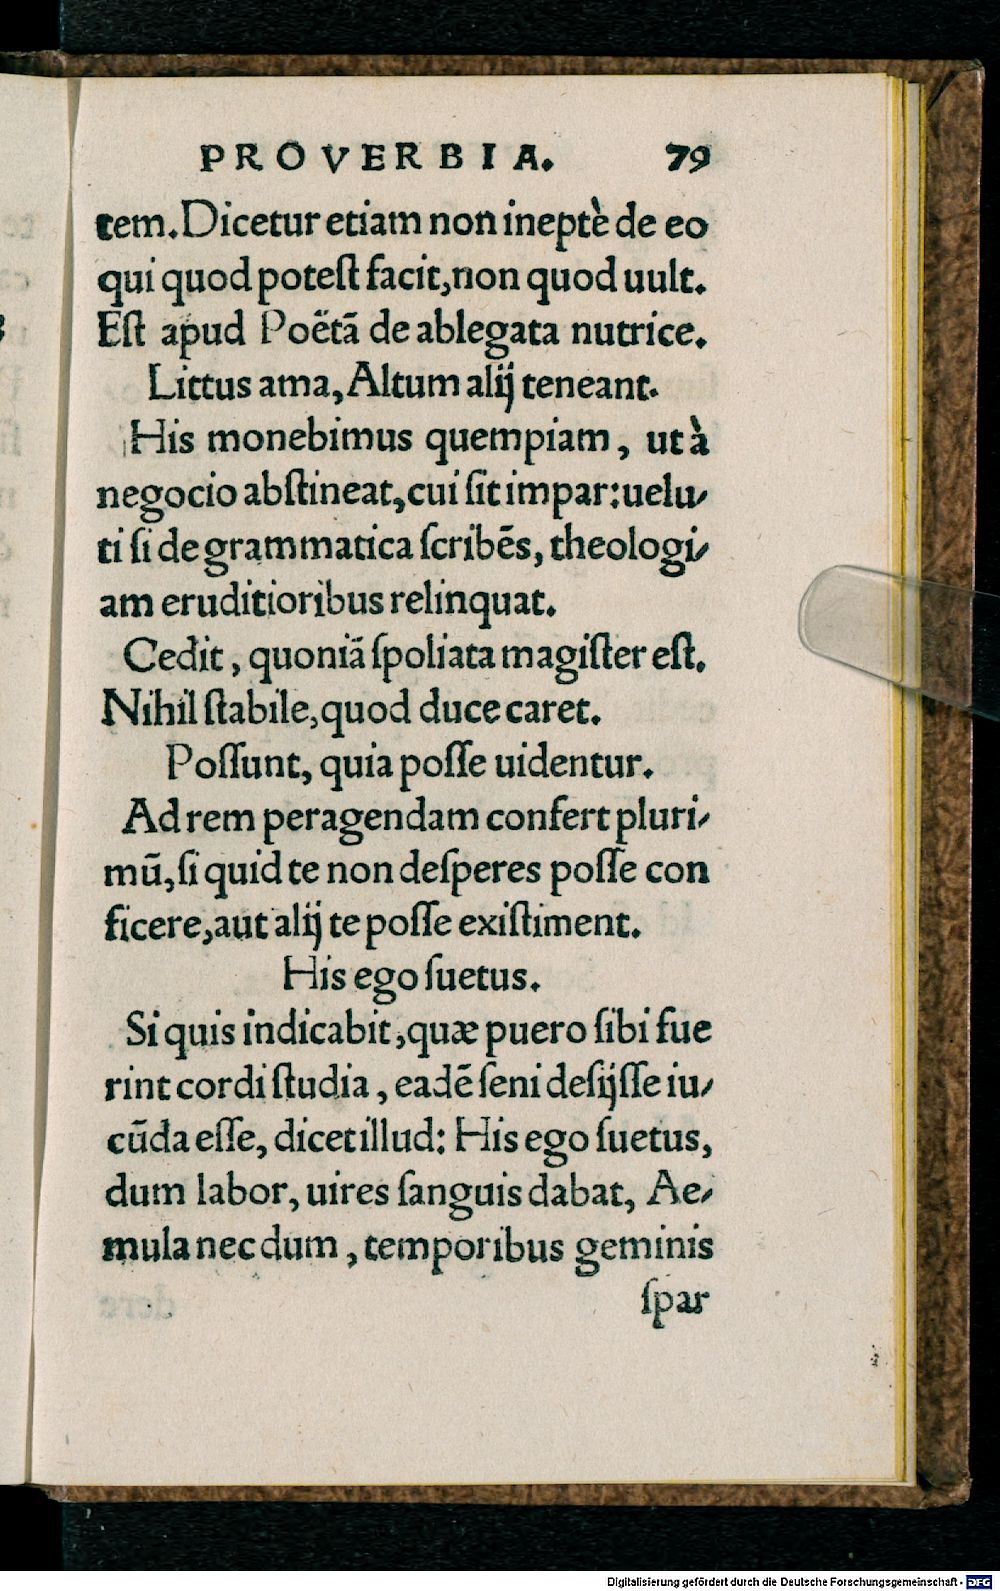 PROVERBIA. 79
tem. Dicetur etiam non ineptè de eo
qui quod poteſt facit, non quod uult.
Eſt apud Poëtã de ablegata nutrice.
Littus ama, Altum alij teneant.
His monebimus quempiam, ut à
negocio abſtineat, cui ſit impar: uelu⸗
ti ſi de grammatica ſcribẽs, theologi⸗
am eruditioribus relinquat.
Cedit, quoniã ſpoliata magiſter eſt.
Nihil ſtabile, quod duce caret.
Poſſunt, quia poſſe uidentur.
Ad rem peragendam confert pluri⸗
mũ, ſi quid te non deſperes poſſe con
ficere, aut alij te poſſe exiſtiment.
His ego ſuetus.
Si quis indicabit, quæ puero ſibi fue
rint cordi ſtudia, eadẽ ſeni deſijſſe iu⸗
cũda eſſe, dicet illud: His ego ſuetus,
dum labor, uires ſanguis dabat, Ae⸗
mula nec dum, temporibus geminis
ſpar
Digitalisierung gefördert durch die Deutsche Forschungsgemeinschaft - DFG